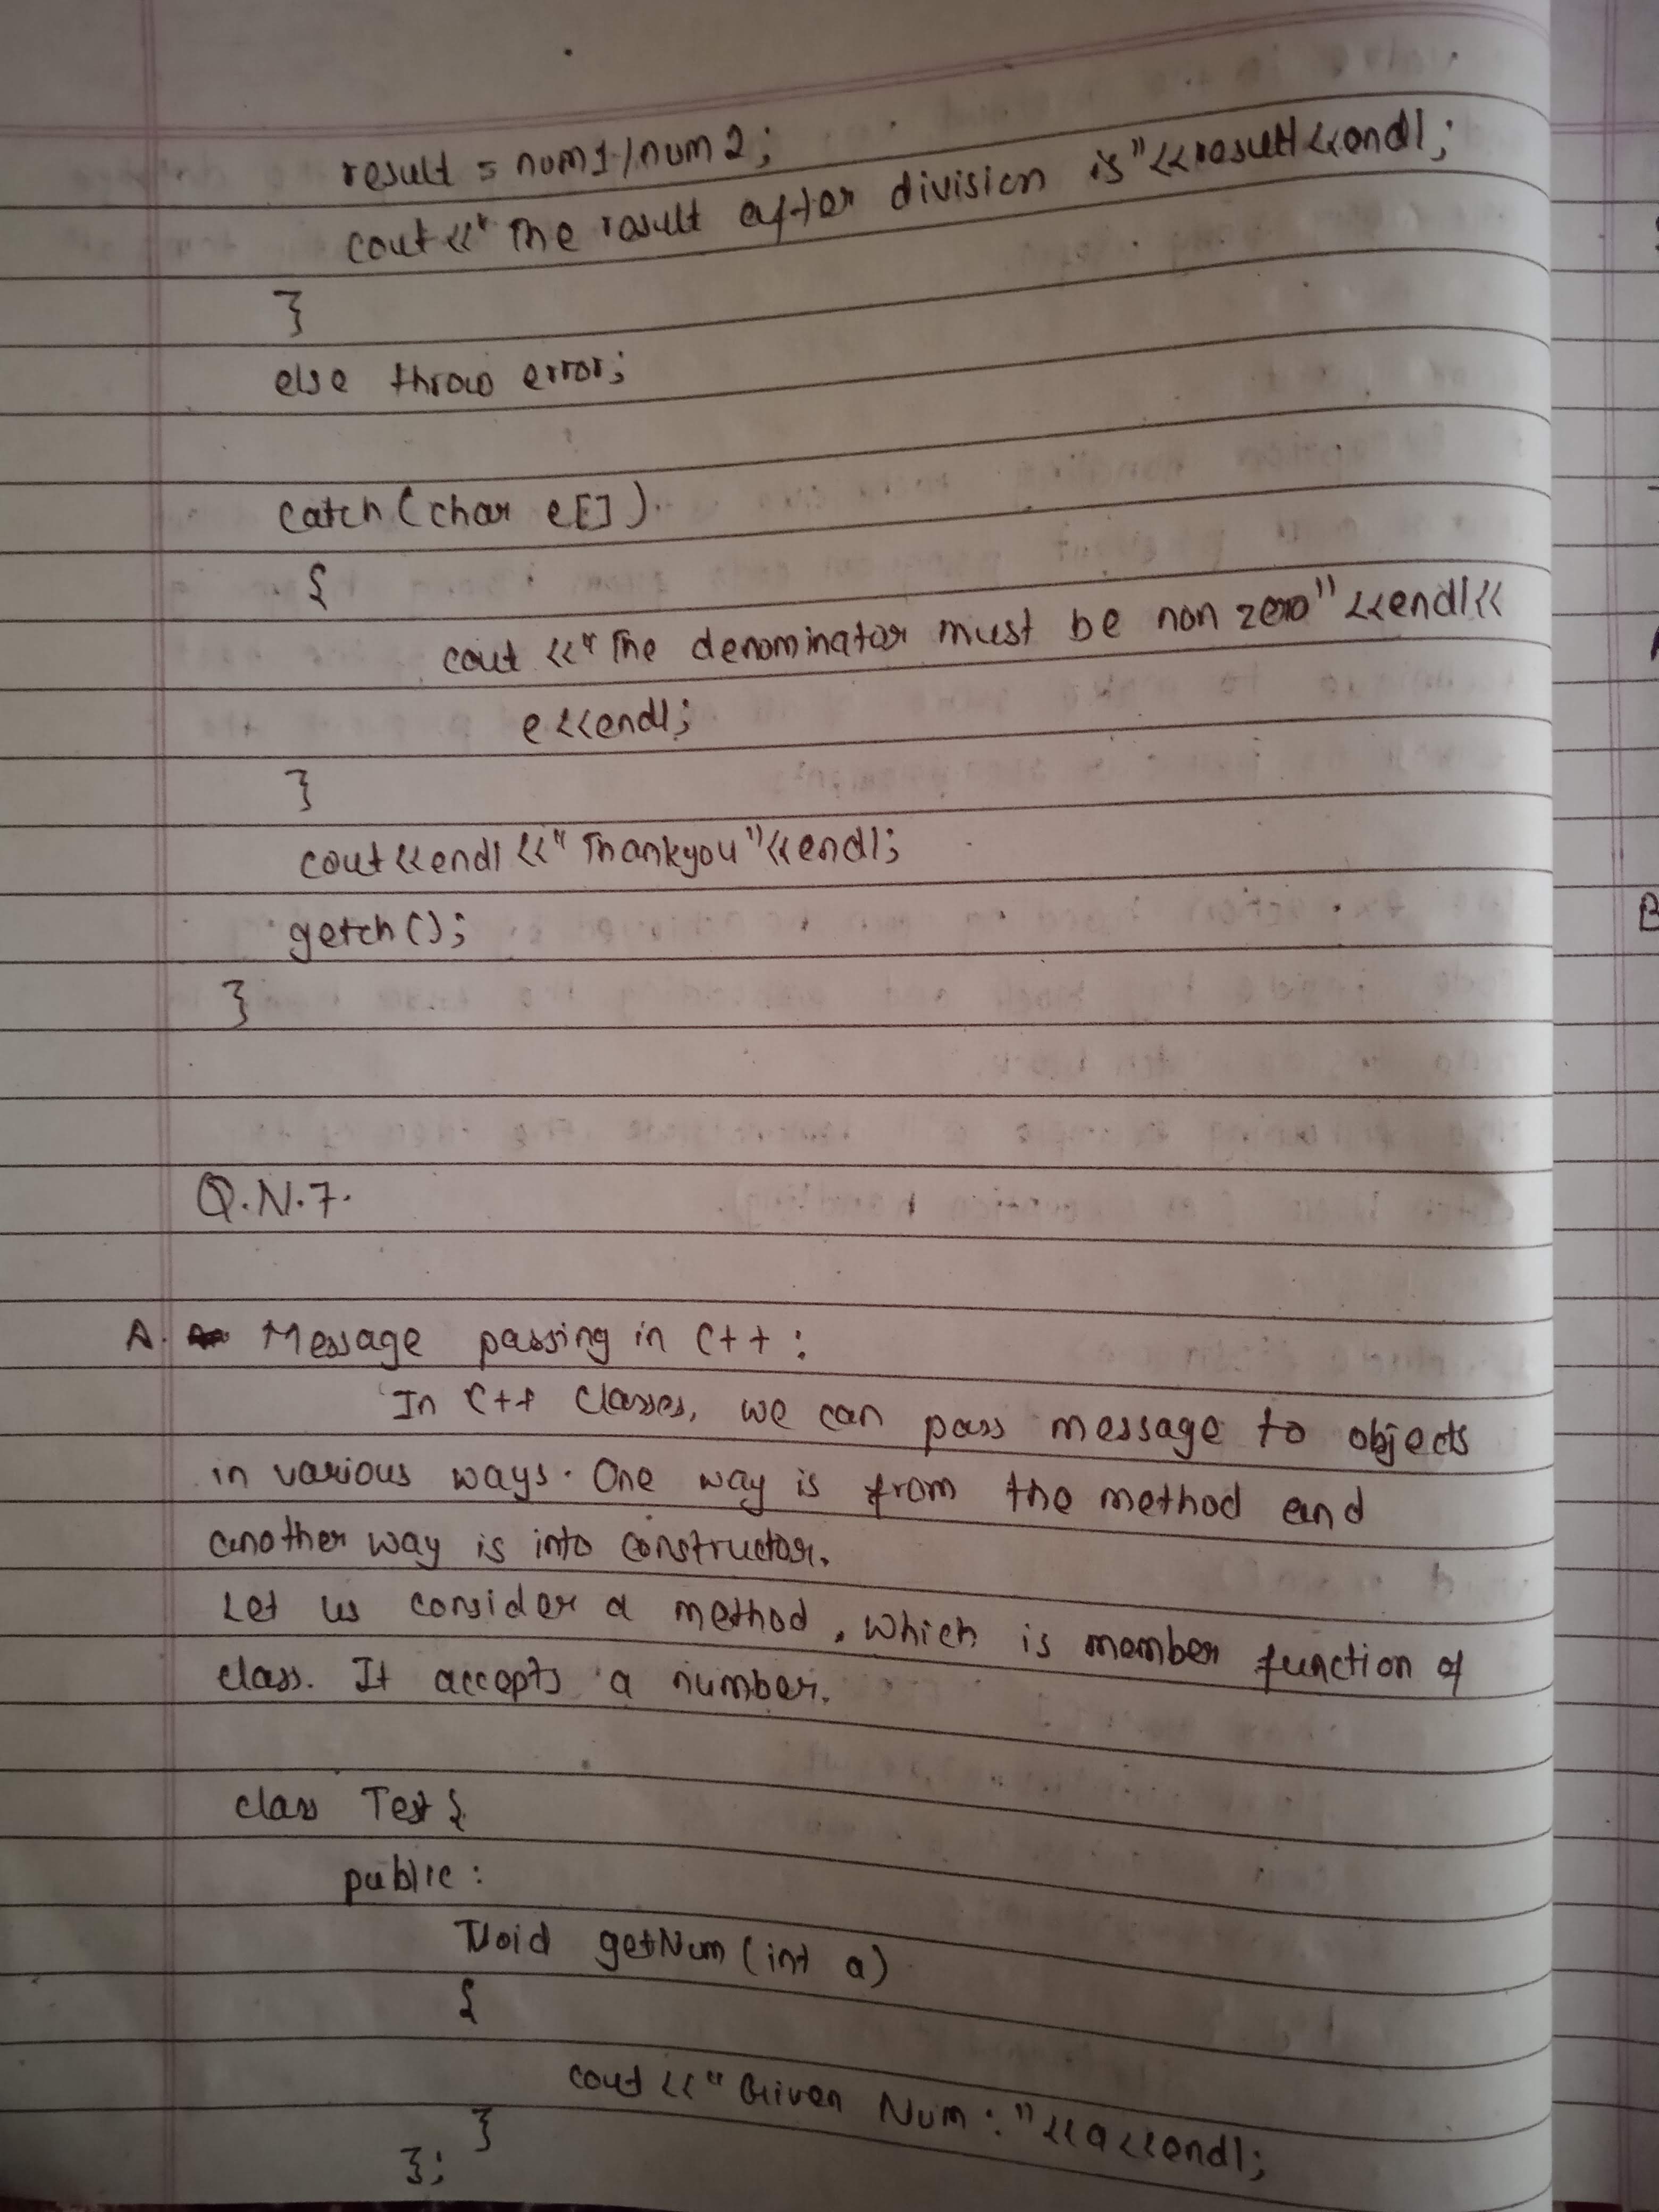 result = num1/num2;
cout<<"The result after division is"<<result<<endl;
}
else throw error;
catch(char e[])
{
cout <<"The denominator must be non zero"<<endl<<
e<<endl;
}
cout<<endl<<"Thankyou"<<endl;
getch();
}
Q.N.7.
A. Message passing in C++:
In C++ classes, we can pass message to objects
in various ways. One way is from the method and
another way is into constructor.
Let us consider a method, which is member function of
class. It accepts a number.
class Test{
public:
Void getNum(int a)
{
cout<<"Given Num:"<<a<<endl;
}
};
B